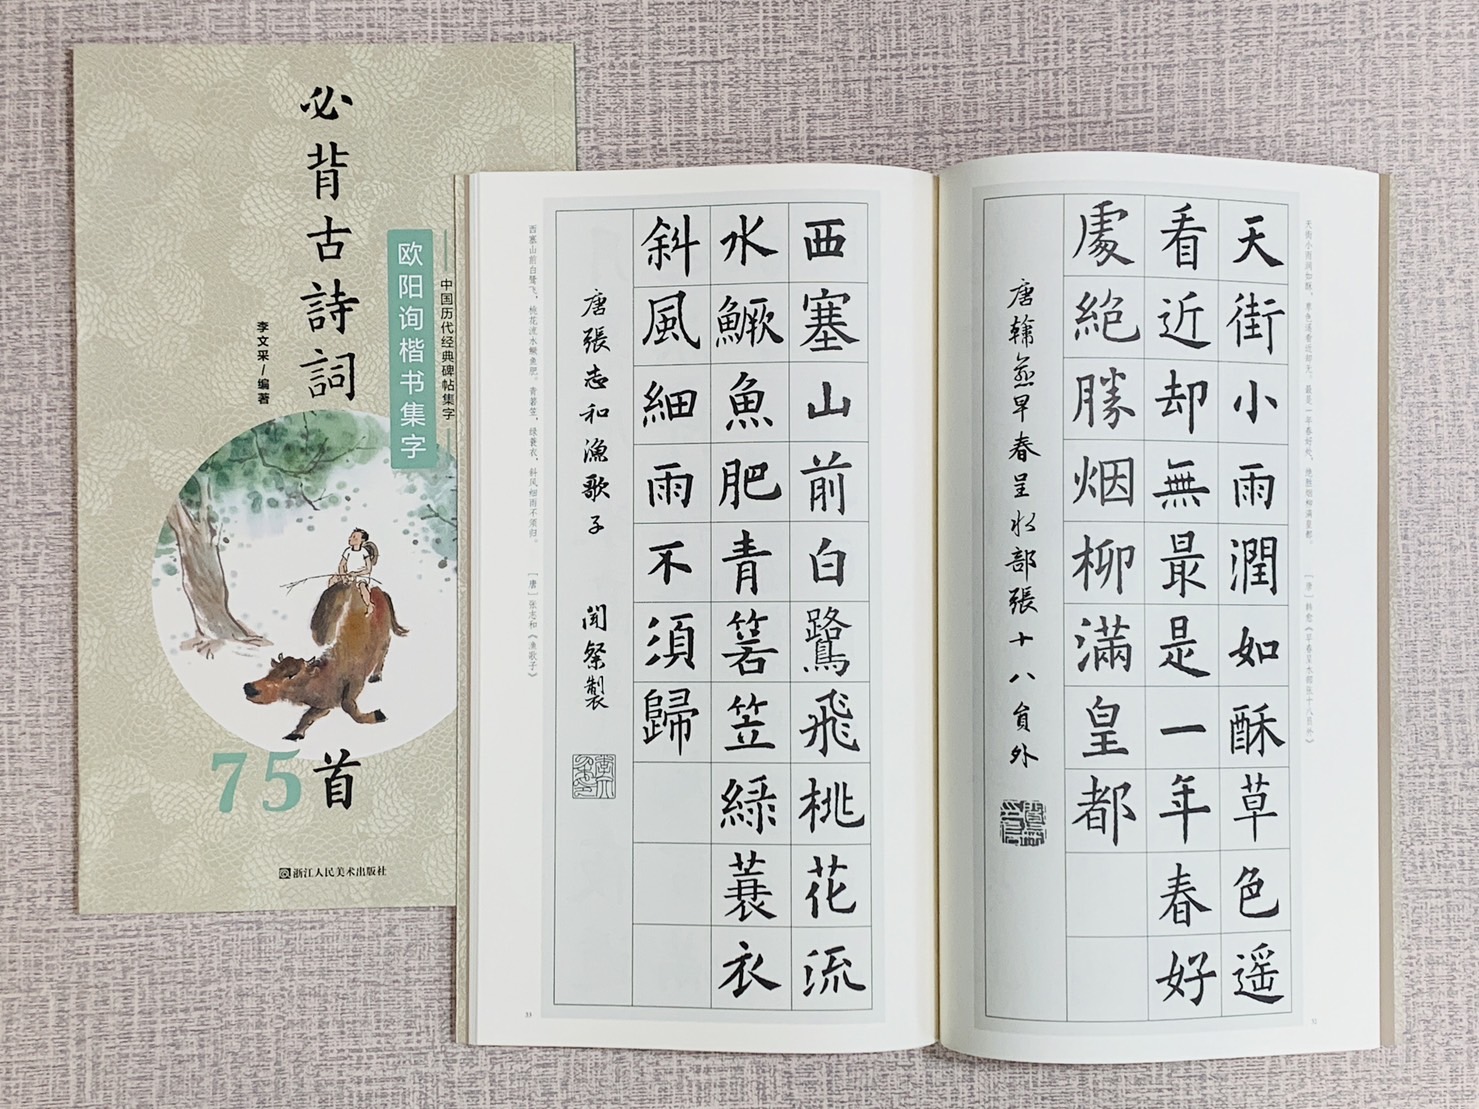 必背古詩詞
中国历代经典碑帖集字
欧阳询楷书集字
李文采/编著
75首
浙江人民美术出版社
天街小雨润如酥，草色遥看近却无。最是一年春好处，绝胜烟柳满皇都。
［唐］韩愈《早春呈水部张十八员外》
天街小雨潤如酥草色遥
看近却無最是一年春好
處絶勝烟柳滿皇都
唐韓愈早春呈水部張十八員外
西塞山前白鷺飛桃花流
水鱖魚肥青箬笠緑蓑衣
斜風細雨不須歸
唐張志和漁歌子
製
西塞山前白鹭飞，桃花流水鳜鱼肥。青箬笠，绿蓑衣，斜风细雨不须归。
［唐］张志和《渔歌子》
53